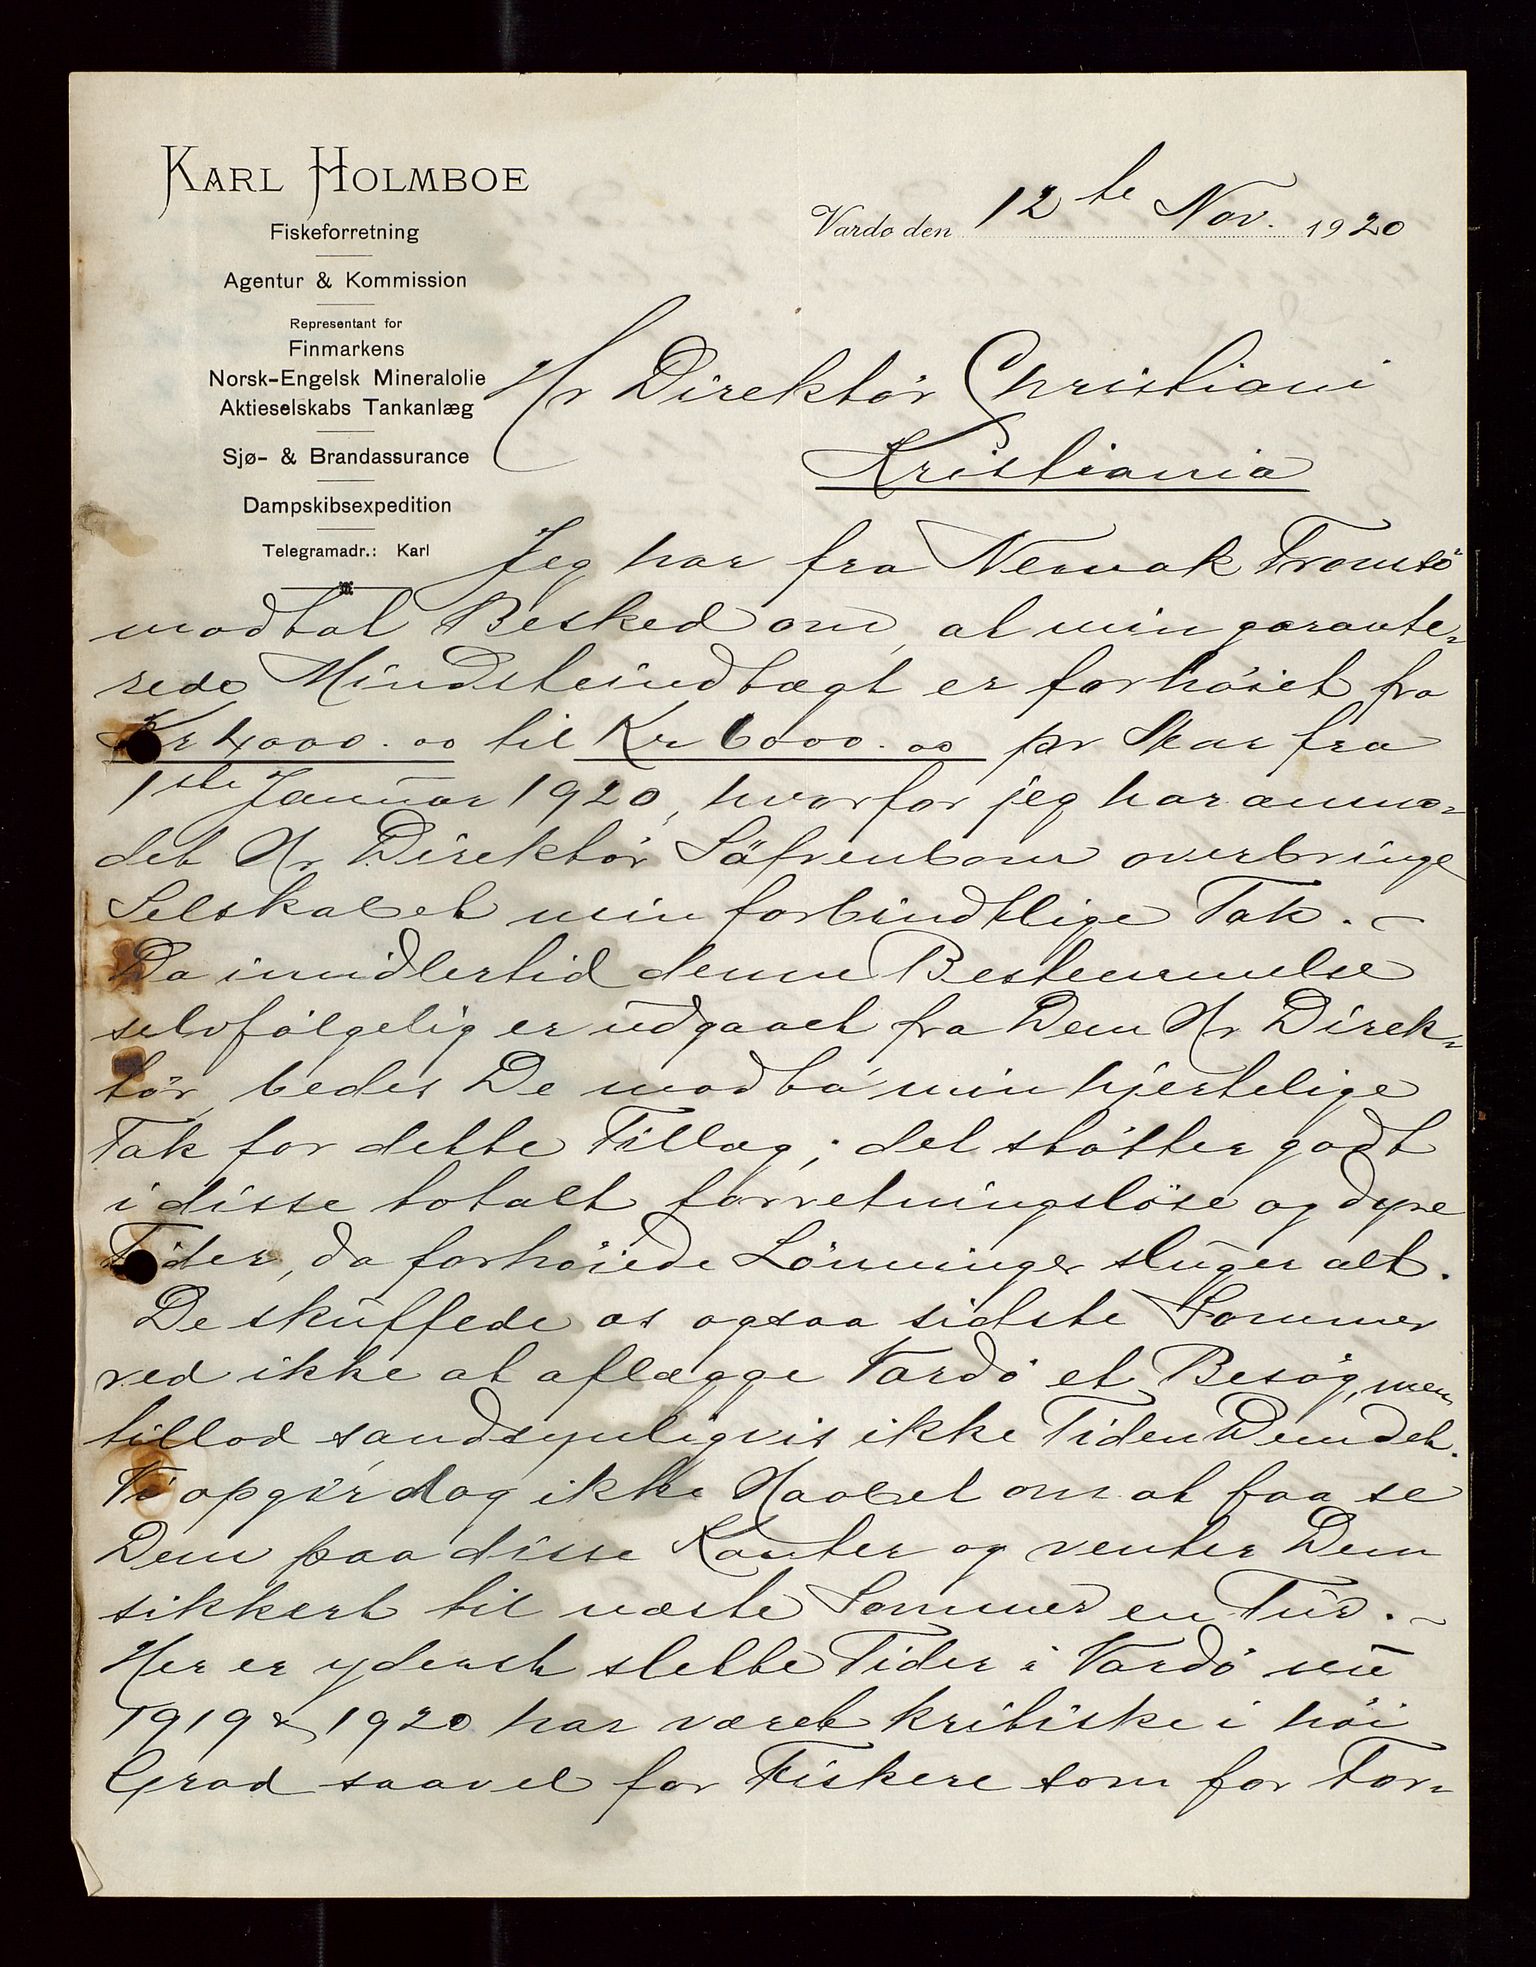 KARL HOLMBOE
Fiskeforretning
Agentur & Kommission
Representant for
Finmarkens
Norsk-Engelsk Mineralolie
Aktieselskabs Tankanlæg
Sjø- & Brandassurance
Dampskibsexpedition
Telegramadr.: Karl
Vardø den 12te Nov. 1920
Hr Direktör Christiani
Kristiania
Jeg har fra Nemak Tromsö
modtat Besked om, at min garante-
rede Mindsteindtægt er forhöiet fra
Kr 4000.00 til Kr 6000.00 pr Aar fra
1ste Januar 1920, hvorfor jeg har anmo-
det Hr Direktör Säfvenbom overbringe
Selskabet min forbindtlige Tak. –
Da imidlertid denne Bestemmelse
selvfölgelig er udgaaet fra Dem Hr Direk-
tör, bedes De modta min hjertelige
Tak for dette Tillæg; det stötter godt
i disse totalt forretningslöse og dyre
Tider, da forhöiede Lönninger sluger alt.
De skuffede os ogsaa sidste Sommer
ved ikke at aflægge Vardö et Besög, men
tillod sandsynligvis ikke Tiden Dem det.
Vi opgir dog ikke Haabet om at faa se
Dem paa disse Kanter og venter Dem
sikkert til næste Sommer en Tur. –
Her er yderst slette Tider i Vardö nu
1919 & 1920 har været kritiske i höi
Grad saavel for Fiskere som for For-